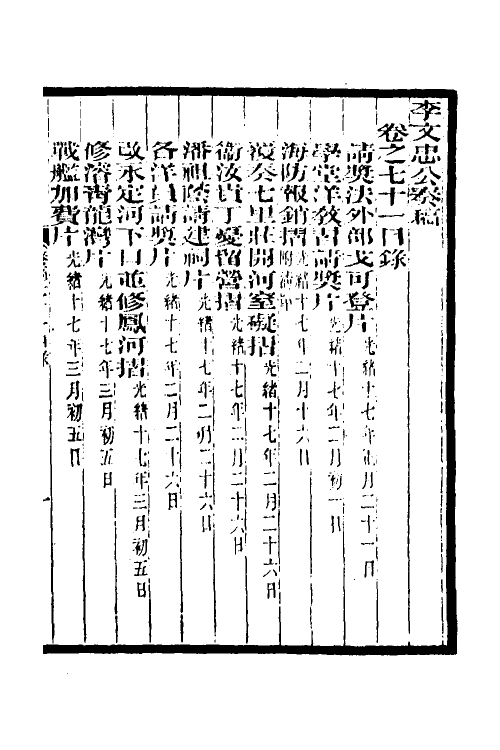 李文忠公奏稿
卷之七十一目錄
請獎法外部戈可登片 光緒十七年正月二十一日
學堂洋教習請獎片 光緒十七年二月初一日
海防報銷摺 附清單 光緒十七年二月十六日
覆奏七里莊開河窒礙摺 光緒十七年二月二十六日
衞汝貴丁憂留營摺 光緒十七年二月二十六日
潘祖蔭請建祠片 光緒十七年二月二十六日
各洋員請獎片 光緒十七年二月二十六日
改永定河下口並修鳳河摺 光緒十七年三月初五日
修濬靑龍灣片 光緒十七年三月初五日
戰艦加費片 光緒十七年三月初五日